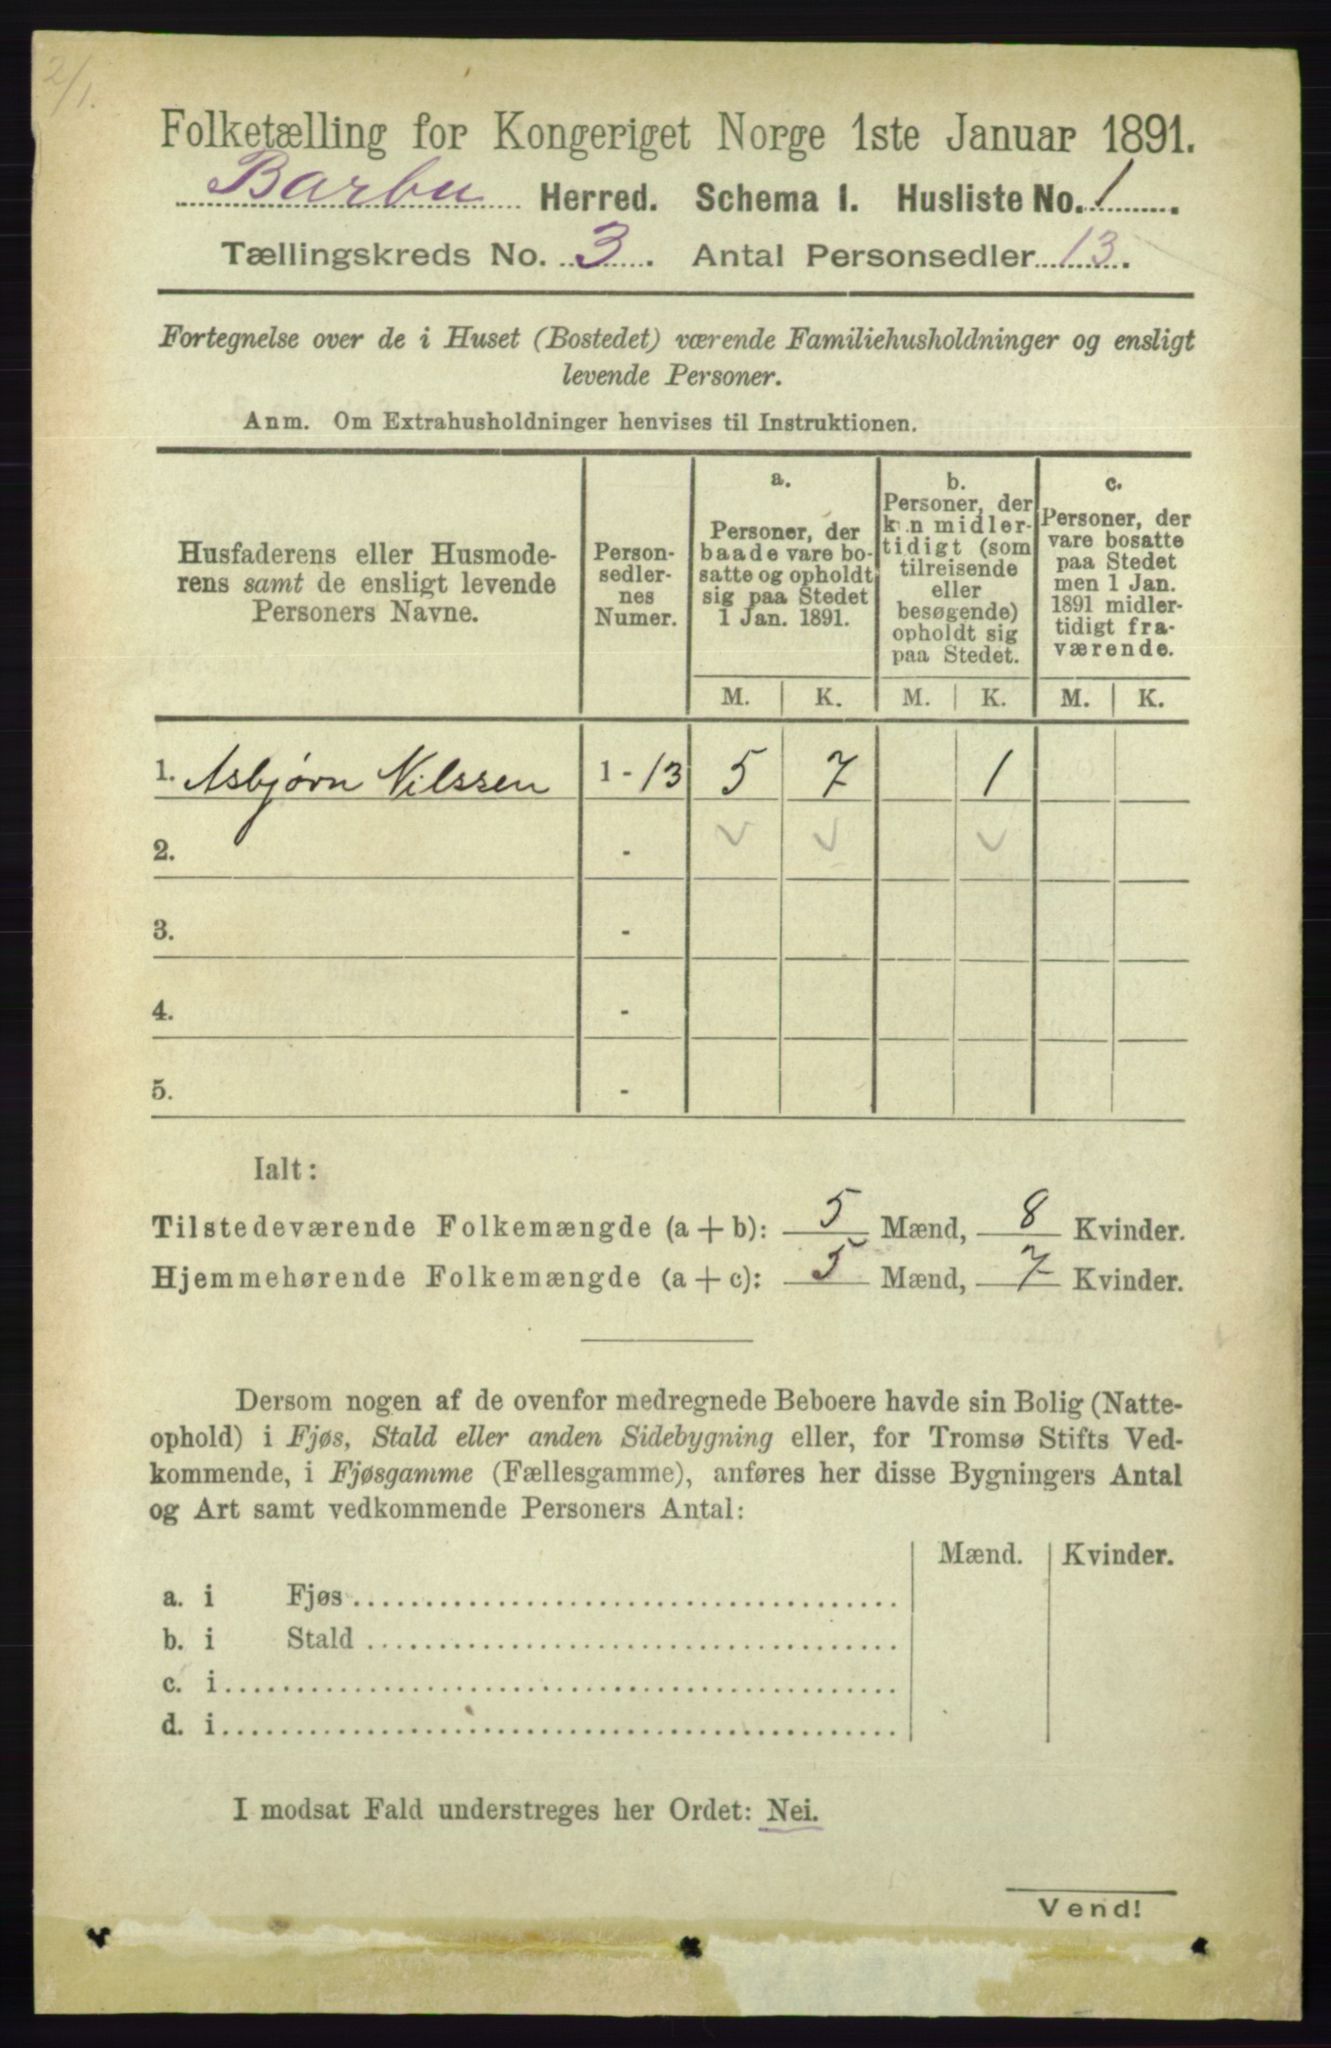 2/1.
Folketælling for Kongeriget Norge 1ste Januar 1891.
Barbu Herred. Schema I. Husliste No. 1.
Tællingskreds No. 3. Antal Personsedler 13.
Fortegnelse over de i Huset (Bostedet) værende Familiehusholdninger og ensligt
levende Personer.
Anm. Om Extrahusholdninger henvises til Instruktionen.
Husfaderens eller Husmode-
rens samt de ensligt levende
Personers Navne.
Person-
sedler-
nes
Numer.
a.
Personer, der
baade vare bo-
satte og opholdt
sig paa Stedet
1 Jan. 1891.
b.
Personer, der
kun midler-
tidigt (som
tilreisende
eller
besøgende)
opholdt sig
paa Stedet.
c.
Personer, der
vare bosatte
paa Stedet
men 1 Jan.
1891 midler-
tidigt fra-
værende.
M. K. M. K. M. K.
1. Asbjørn Nilssen 1 - 13 5 7 1
2. -
3. -
4. -
5. -
Ialt:
Tilstedeværende Folkemængde (a + b): 5 Mænd, 8 Kvinder.
Hjemmehørende Folkemængde (a + c): 5 Mænd, 7 Kvinder.
Dersom nogen af de ovenfor medregnede Beboere havde sin Bolig (Natte-
ophold) i Fjøs, Stald eller anden Sidebygning eller, for Tromsø Stifts Ved-
kommende, i Fjøsgamme (Fællesgamme), anføres her disse Bygningers Antal
og Art samt vedkommende Personers Antal:
Mænd. Kvinder.
a. i Fjøs
b. i Stald
c. i
d. i
I modsat Fald understreges her Ordet: Nei.
Vend!